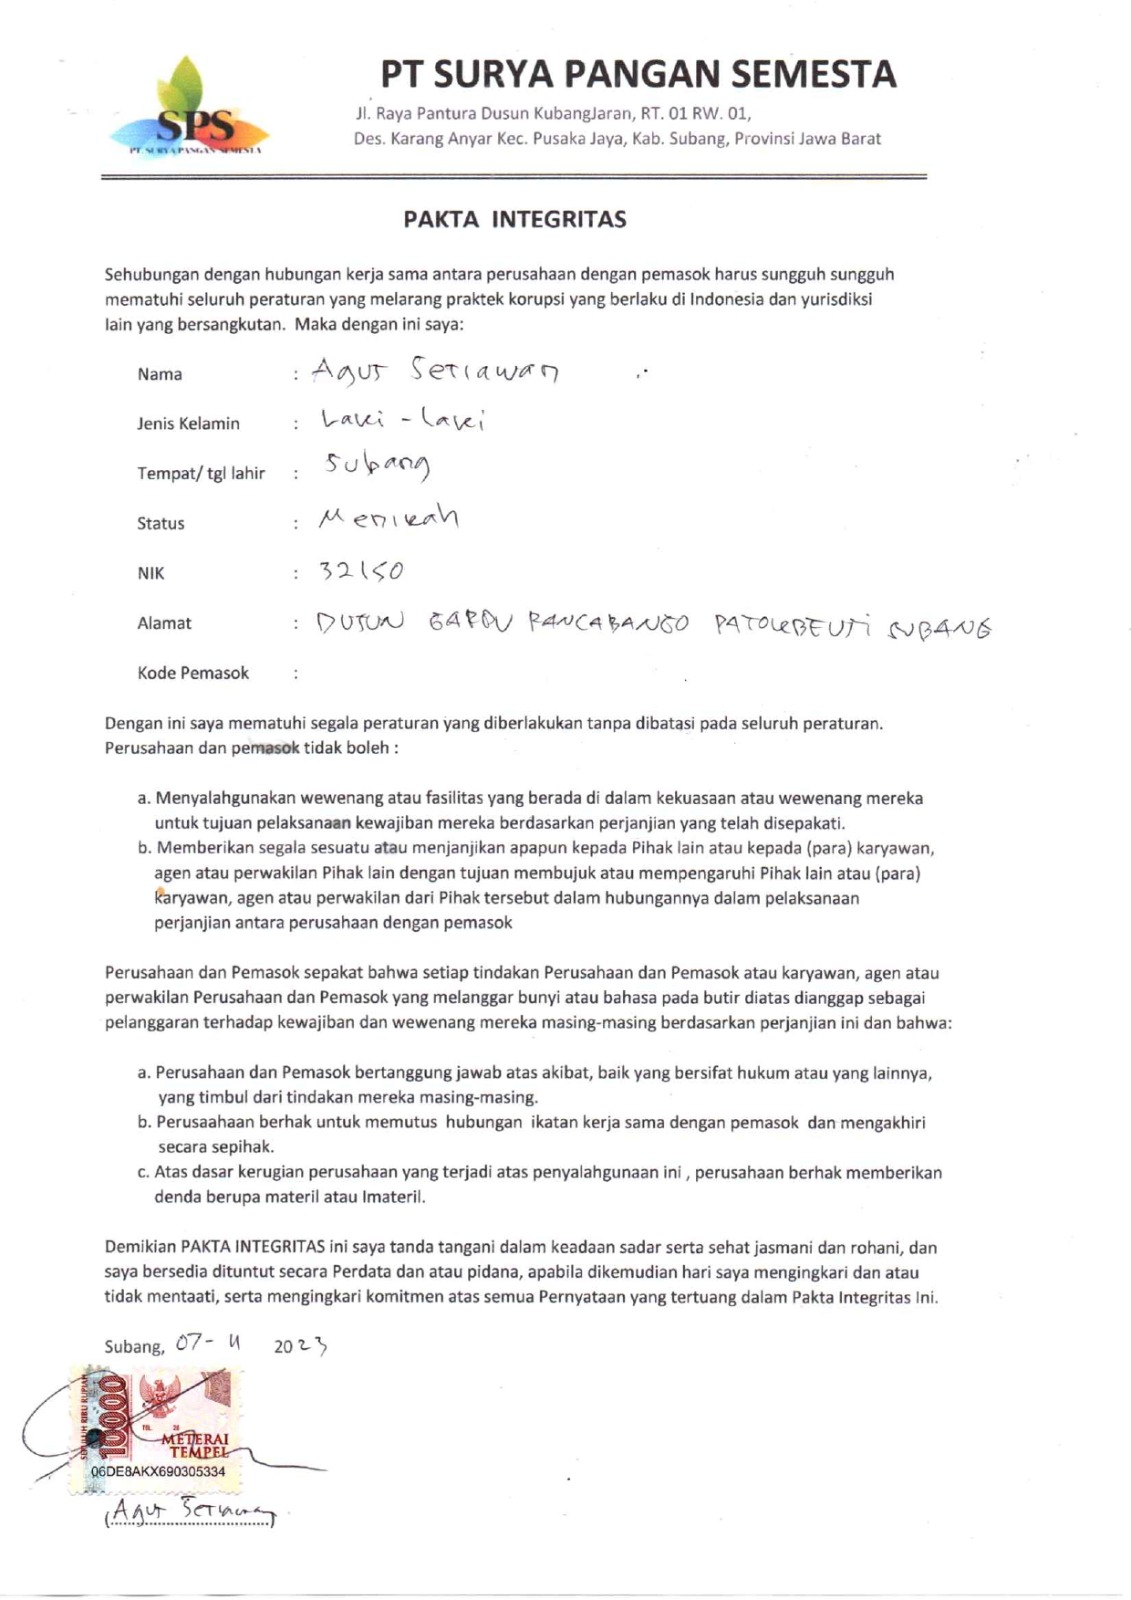 SPS
PT. SURYA PANGAN SEMESTA
PT SURYA PANGAN SEMESTA
Jl. Raya Pantura Dusun KubangJaran, RT. 01 RW. 01,
Des. Karang Anyar Kec. Pusaka Jaya, Kab. Subang, Provinsi Jawa Barat
PAKTA INTEGRITAS
Sehubungan dengan hubungan kerja sama antara perusahaan dengan pemasok harus sungguh sungguh
mematuhi seluruh peraturan yang melarang praktek korupsi yang berlaku di Indonesia dan yurisdiksi
lain yang bersangkutan. Maka dengan ini saya:
Nama : Agus Setiawan
Jenis Kelamin : Laki - Laki
Tempat/ tgl lahir : Subang
Status : Menikah
NIK : 32150
Alamat : DUSUN GARDU RANCABANGO PATOKBEUSI SUBANG
Kode Pemasok :
Dengan ini saya mematuhi segala peraturan yang diberlakukan tanpa dibatasi pada seluruh peraturan.
Perusahaan dan pemasok tidak boleh :
a. Menyalahgunakan wewenang atau fasilitas yang berada di dalam kekuasaan atau wewenang mereka
untuk tujuan pelaksanaan kewajiban mereka berdasarkan perjanjian yang telah disepakati.
b. Memberikan segala sesuatu atau menjanjikan apapun kepada Pihak lain atau kepada (para) karyawan,
agen atau perwakilan Pihak lain dengan tujuan membujuk atau mempengaruhi Pihak lain atau (para)
karyawan, agen atau perwakilan dari Pihak tersebut dalam hubungannya dalam pelaksanaan
perjanjian antara perusahaan dengan pemasok
Perusahaan dan Pemasok sepakat bahwa setiap tindakan Perusahaan dan Pemasok atau karyawan, agen atau
perwakilan Perusahaan dan Pemasok yang melanggar bunyi atau bahasa pada butir diatas dianggap sebagai
pelanggaran terhadap kewajiban dan wewenang mereka masing-masing berdasarkan perjanjian ini dan bahwa:
a. Perusahaan dan Pemasok bertanggung jawab atas akibat, baik yang bersifat hukum atau yang lainnya,
yang timbul dari tindakan mereka masing-masing.
b. Perusaahaan berhak untuk memutus hubungan ikatan kerja sama dengan pemasok dan mengakhiri
secara sepihak.
c. Atas dasar kerugian perusahaan yang terjadi atas penyalahgunaan ini , perusahaan berhak memberikan
denda berupa materil atau Imateril.
Demikian PAKTA INTEGRITAS ini saya tanda tangani dalam keadaan sadar serta sehat jasmani dan rohani, dan
saya bersedia dituntut secara Perdata dan atau pidana, apabila dikemudian hari saya mengingkari dan atau
tidak mentaati, serta mengingkari komitmen atas semua Pernyataan yang tertuang dalam Pakta Integritas Ini.
Subang, 07- 11 2023
SEPULUH RIBU RUPIAH
10000
TGL. 20
METERAI
TEMPEL
06DE8AKX690305334
(Agus Setiawan)